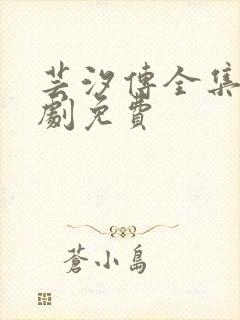 芸汐傳全集
劇免費
蒼小島